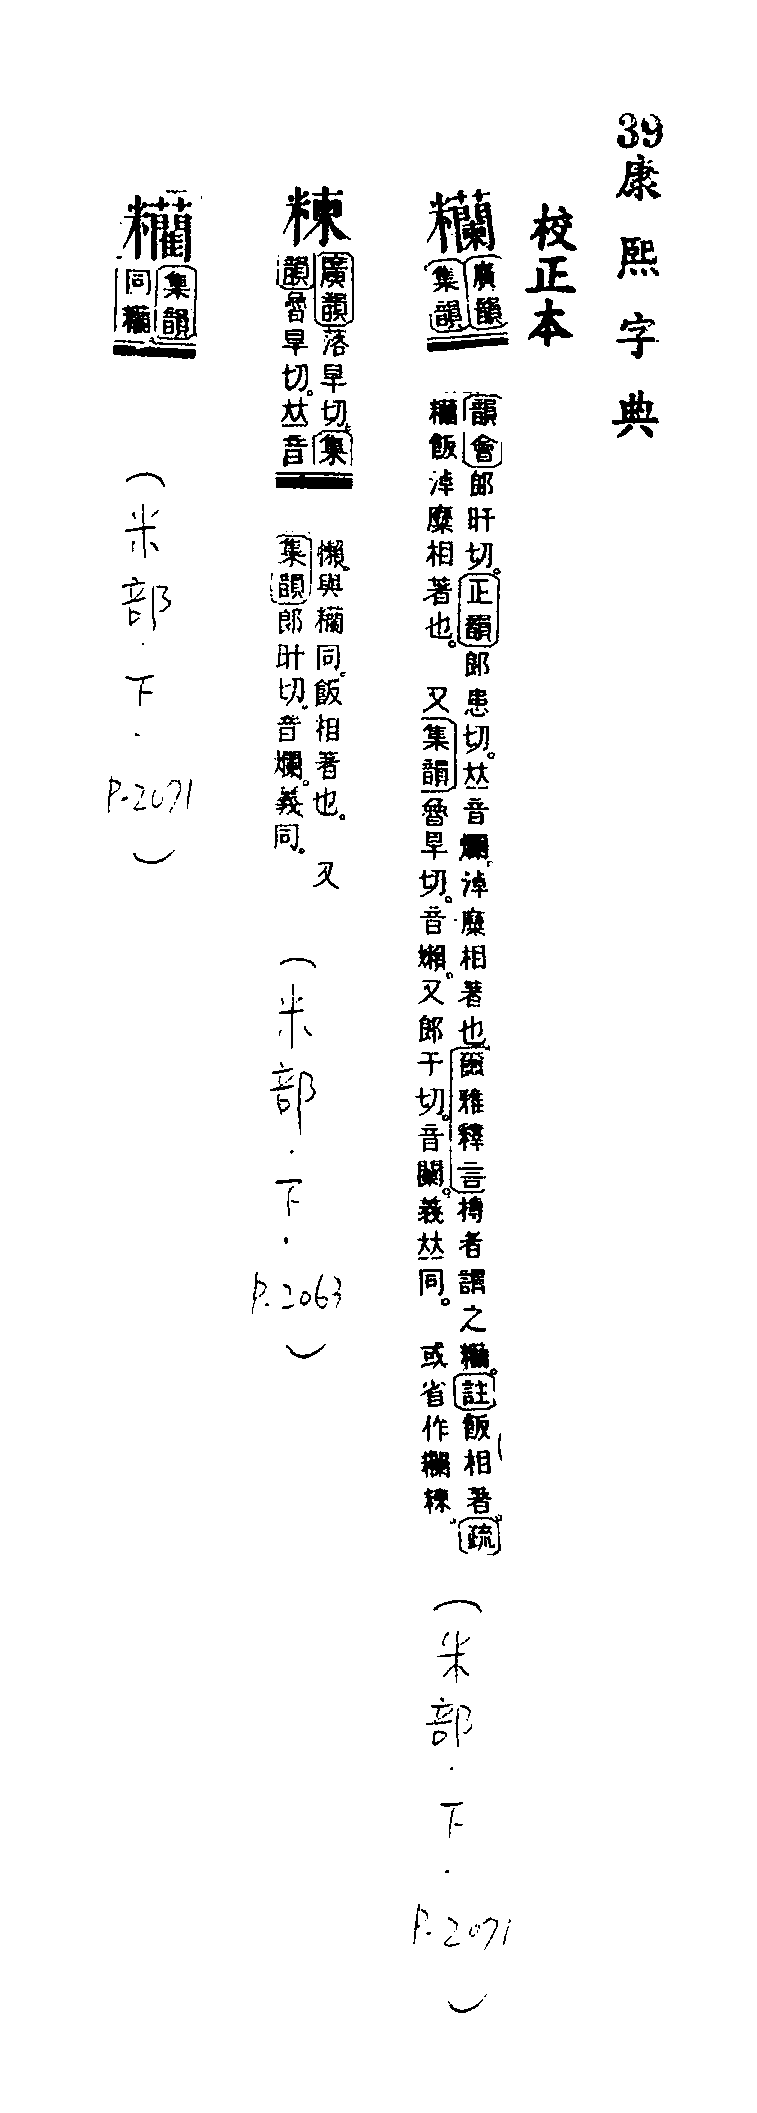 39康熙字典
校正本
糷
廣韻
集韻
韻會郎旰切。正韻郎患切。𠀤音爛。淖糜相著也爾雅釋言摶者謂之糷。註飯相著。疏
糷飯淖糜相著也。 又集韻魯旱切。音嬾。又郎干切。音闌。義𠀤同。 或省作糷䊛。
(米部.下.P.2071)
䊛
廣韻落旱切。集
韻魯旱切。𠀤音
懶。與糷同。飯相著也。 又
集韻郎旰切。音爛。義同。
(米部.下.P.2063)
集韻
同糷
(米部.下.P.2071)